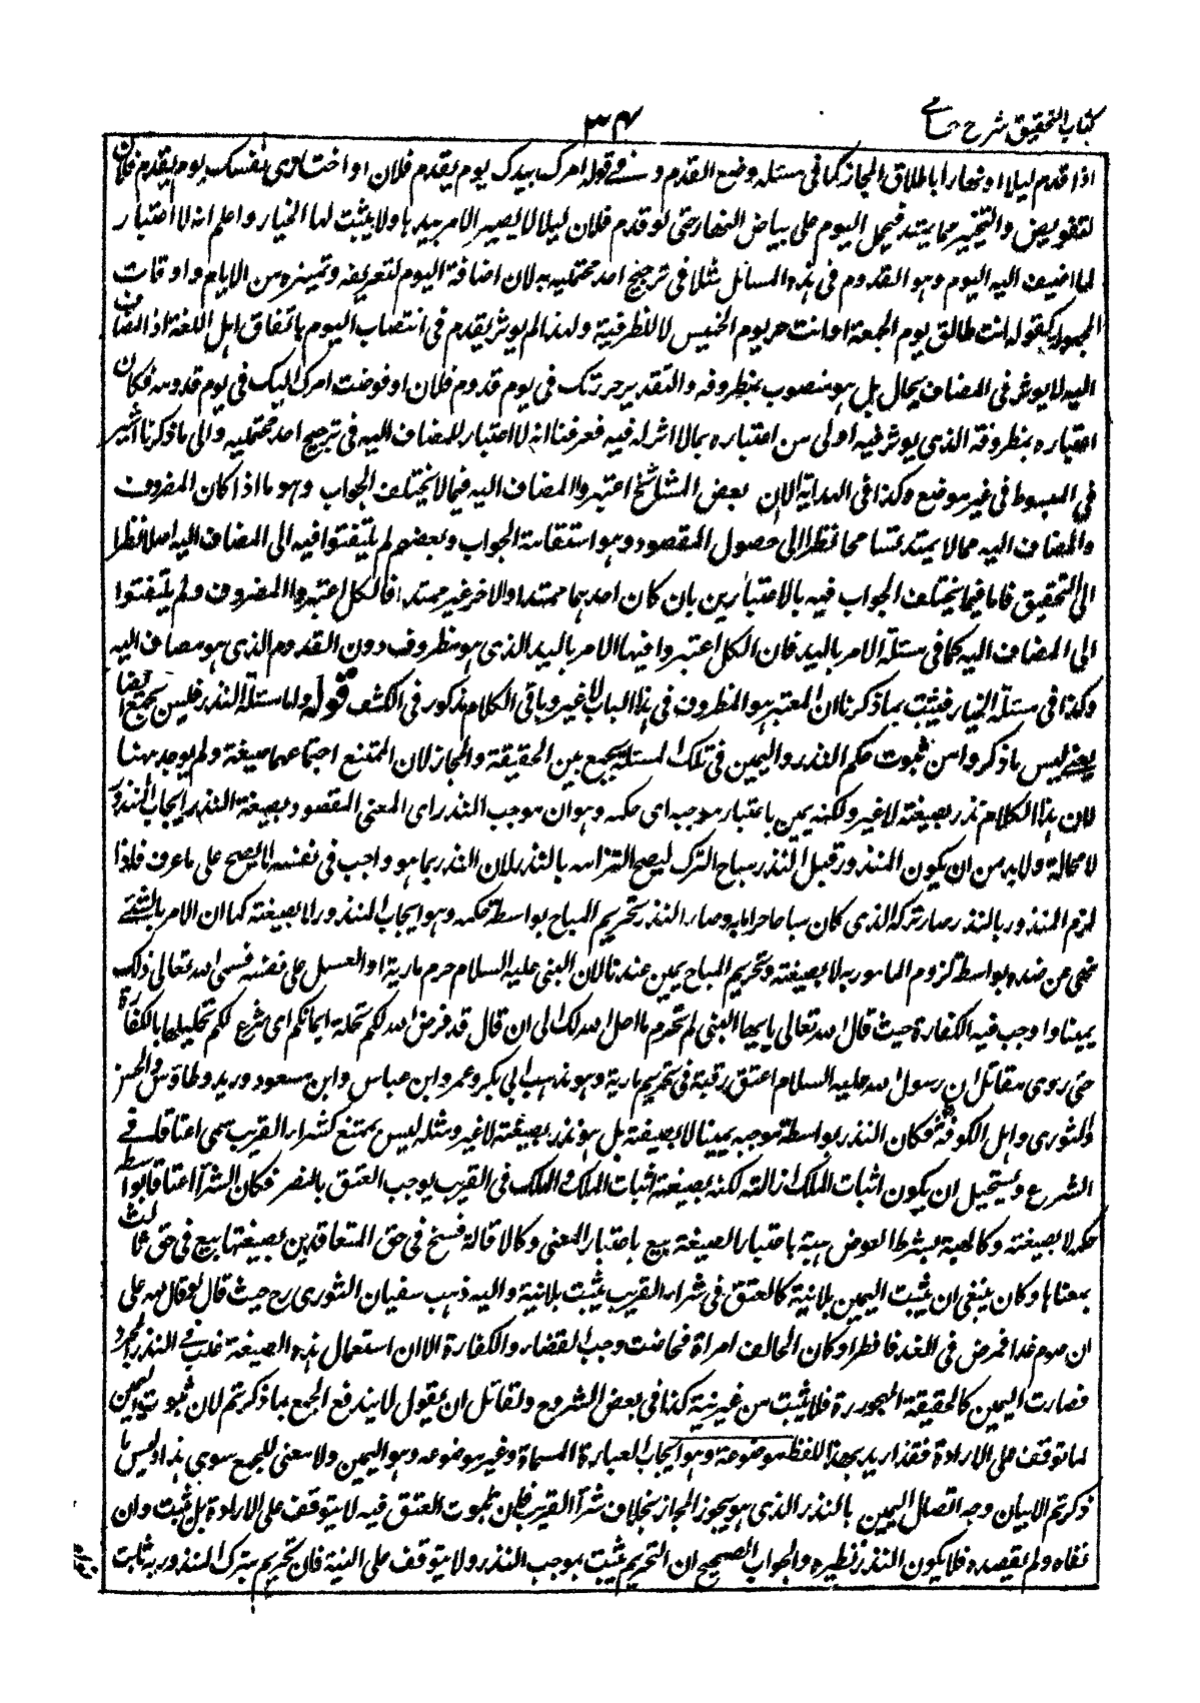 كتاب التحقيق شرح حسامي
٣٤
اذا قدم ليلا او نهارا باطلاق المجاز كما فى مسئلة وضع القدم و فى قوله امرك بيدك يوم يقدم فلان او اختارى نفسك يوم يقدم فلان
لتفويض والتخيير مما يمتد فيحمل اليوم على بياض النهار حتى لو قدم فلان ليلا لا يصير الامر بيدها ولا يثبت لها الخيار واعلم انه لا اعتبار
لما اضيف اليه اليوم وهو القدوم فى هذه المسائل مثلا فى ترجيح احد محتمليه لان اضافة اليوم لتعريفه وتميزه من الايام واوقات
المجهول كقوله انت طالق يوم الجمعة او انت حر يوم الخميس لا للظرفية ولهذا لم يوثر يقدم فى انتصاب اليوم باتفاق اهل اللغة اذ المضاف
اليه لا يوثر فى المضاف بحال بل هو منصوب بمظروفه والتقدير حررتك فى يوم قدوم فلان او فوضت امرك اليك فى يوم قدومه فكان
اعتباره بمظروفه الذى يوثر فيه اولى من اعتباره بما لا اثر له فيه فعرفنا انه لا اعتبار للمضاف اليه فى ترجيح احد محتمليه والى ما ذكرنا اشير
فى المبسوط فى غير موضع وكذا فى الهداية الا ان بعض المشائخ اعتبروا المضاف اليه فيما لا يختلف الجواب وهو ما اذا كان المظروف
والمضاف اليه مما لا يمتد تسامحا نظرا الى حصول المقصود وهو استقامة الجواب وبعضهم لم يلتفتوا فيه الى المضاف اليه اصلا نظرا
الى التحقيق فاما فيما يختلف الجواب فيه بالاعتبارين بان كان احدهما ممتدا والاخر غير ممتد فالكل اعتبروا المظروف ولم يلتفتوا
الى المضاف اليه كما فى مسئلة الامر باليد فان الكل اعتبروا فيها الامر باليد الذى هو مظروف دون القدوم الذى هو مضاف اليه
وكذا فى مسئلة الخيار فيثبت بما ذكرنا ان المعتبر هو المظروف فى هذا الباب لا غير وباقى الكلام مذكور فى الكشف قوله واما مسئلة النذر فليس بجمع ايضا
يعنى ليس ما ذكروا من ثبوت حكم النذر واليمين فى تلك المسئلة بجمع بين الحقيقة والمجاز لان الممتنع اجتماعهما صيغة ولم يوجد ههنا
لان هذا الكلام نذر بصيغته لا غير ولكنه يمين باعتبار موجبه اى حكمه وهو ان موجب النذر اى المعنى المقصود بصيغة النذر ايجاب المنذور
لا محالة ولا بد من ان يكون المنذور قبل النذر مباح الترك ليصح التزامه بالنذر لان النذر بما هو واجب فى نفسه لا يصح على ما عرف فاذا
لزم المنذور بالنذر صار تركه الذى كان مباحا حراما به وصار النذر تحريم المباح بواسطة حكمه وهو ايجاب المنذور لا بصيغته كما ان الامر بالشئ
نهى عن ضده بواسطة لزوم المامور به لا بصيغته وتحريم المباح يمين عندنا لان النبى عليه السلام حرم مارية او العسل على نفسه فسمى الله تعالى ذلك
يمينا واوجب فيه الكفارة حيث قال الله تعالى يايها النبى لم تحرم ما احل الله لك الى ان قال قد فرض الله لكم تحلة ايمانكم اى شرع لكم تحليلها بالكفارة
حتى روى مقاتل ان رسول الله عليه السلام اعتق رقبة فى تحريم مارية وهو مذهب ابى بكر وعمر وابن عباس وابن مسعود وزيد وطاوس والحسن
والثورى واهل الكوفة فكان النذر بواسطة موجبه يمينا لا بصيغته بل هو نذر بصيغته لا غير ومثله ليس بممتنع كشراء القريب سمى اعتاقا فى
الشرع ويستحيل ان يكون اثبات الملك ازالته لكنه بصيغته اثبات الملك والملك فى القريب يوجب العتق بالنص فكان الشراء اعتاقا بواسطة
حكمه لا بصيغته وكالهبة بشرط العوض هبة باعتبار الصيغة بيع باعتبار المعنى وكالاقالة فسخ فى حق المتعاقدين بصيغتها بيع فى حق ثالث
بمعناها وكان ينبغى ان يثبت اليمين بلا نية كالعتق فى شراء القريب يثبت بلا نية واليه ذهب سفيان الثورى رح حيث قال لو قال لله على
ان اصوم غدا فمرض فى الغد فافطر او كان الحالف امراة فحاضت وجب القضاء والكفارة الا ان استعمال هذه الصيغة غلب فى النذر المجرد
فصارت اليمين كالحقيقة المهجورة فلا يثبت من غير نية كذا فى بعض الشروح ولقائل ان يقول لا يندفع الجمع بما ذكرتم لان ثبوت اليمين
لما توقف على الارادة فقد اريد بهذا اللفظ موضوعه وهو ايجاب العبارة المسماة وغير موضوعه وهو اليمين ولا معنى للجمع سوى هذا وليس ما
ذكرتم الا بيان وجه اتصال اليمين بالنذر الذى هو يجوز المجاز بخلاف شراء القريب فان ثبوت العتق فيه لا يتوقف على الارادة بل يثبت وان
نفاه ولم يقصده فلا يكون النذر نظيره والجواب الصحيح ان التحريم يثبت بموجب النذر ولا يتوقف على النية فان تحريم ترك المنذور به ثابت